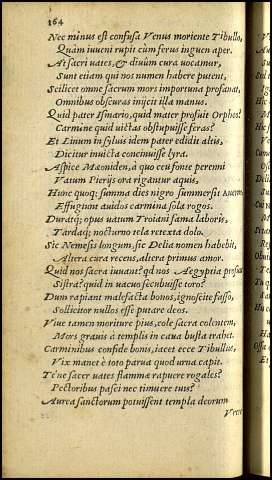 164
Nec minus est confusa Venus moriente Tibullo,
Quàm iuueni rupit cùm ferus inguen aper.
At sacri uates, & diuûm cura uocamur,
Sunt etiam qui nos numen habere putent,
Scilicet omne sacrum mors importuna prosanat,
Omnibus obscuras inijcit illa manus.
Quid pater Ismario, quid mater profuit Orpheo?
Carmine quid uictas obstupuisse feras?
Et Linum in syluis idem pater edidit altis,
Dicitur inuicta concinuisse lyra.
Aspice Mæoniden, à quo ceu fonte perenni
Vatum Pierijs ora rigantur aquis.
Hunc quoq; summa dies nigro summersit Auerno
Effugiunt auidos carmina sola rogos.
Durat q; opus uatum Troiani fama laboris,
Tardaq; nocturno tela retexta dolo.
Sic Nemesis longum, sic Delia nomen habebit,
Altera cura recens, altera primus amor.
Quid nos sacra iuuant? qd nos Aegyptia prosunt
Sistra? quid in uacuo secubuisse toro?
Dum rapiunt malefacta bonos, ignoscite fasso,
Sollicitor nullos esse putare deos.
Viue tamen moriture pius, cole sacra colentem,
Mors grauis à templis in caua busta trahet.
Carminibus confide bonis, iacet ecce Tibullus,
Vix manet è toto parua quod urna capit.
Te ne sacer uates flammæ rapuere rogales?
Pectoribus pasci nec timuere tuis?
Aurea sanctorum potuissent templa deorum